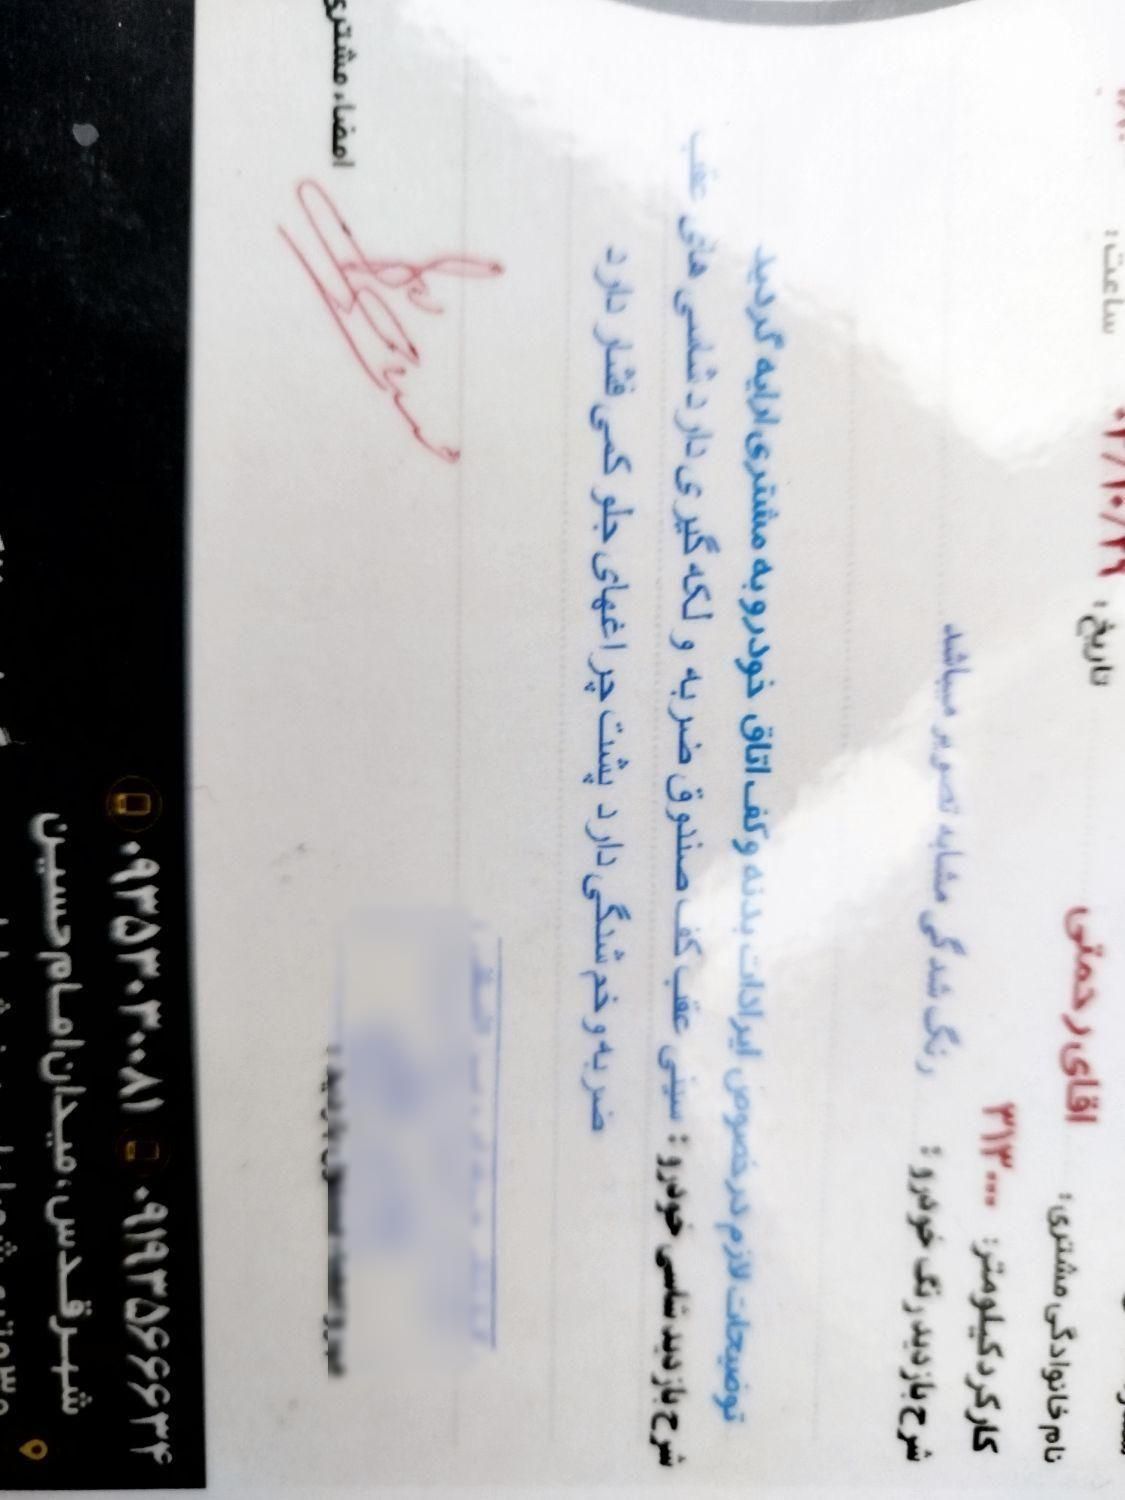 ساعت:
تاریخ: ۰۳/۱۰/۲۹
نام خانوادگی مشتری: اقای رحمتی
کارکرد کیلومتر: ۳۱۳۰۰۰
شرح بازدید رنگ خودرو: رنگ شدگی مشابه تصویر میباشد
توضیحات لازم در خصوص ایرادات بدنه و کف اتاق خودرو به مشتری ارایه گردید
شرح بازدید شاسی خودرو: سینی عقب کف صندوق ضربه و لکه گیری دارد شاسی های عقب
ضربه و خم شدگی دارد پشت چراغهای جلو کمی فشار دارد
امضاء مشتری
۰۹۱۹۳۵۶۶۶۳۴ ۰۹۳۵۳۰۳۰۰۸۱
شهرقدس، میدان امام حسین